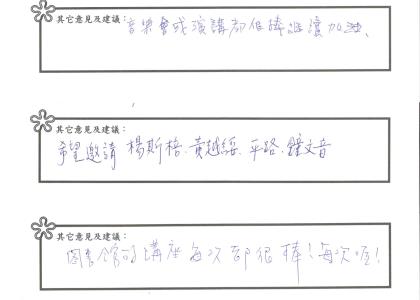 其它意見及建議：音樂會或演講都很棒繼續加油、
其它意見及建議：
希望邀請 楊斯棓、黃越綏、平路、鐘文音
其它意見及建議：
圖書館的講座每次都很棒！每次喔！